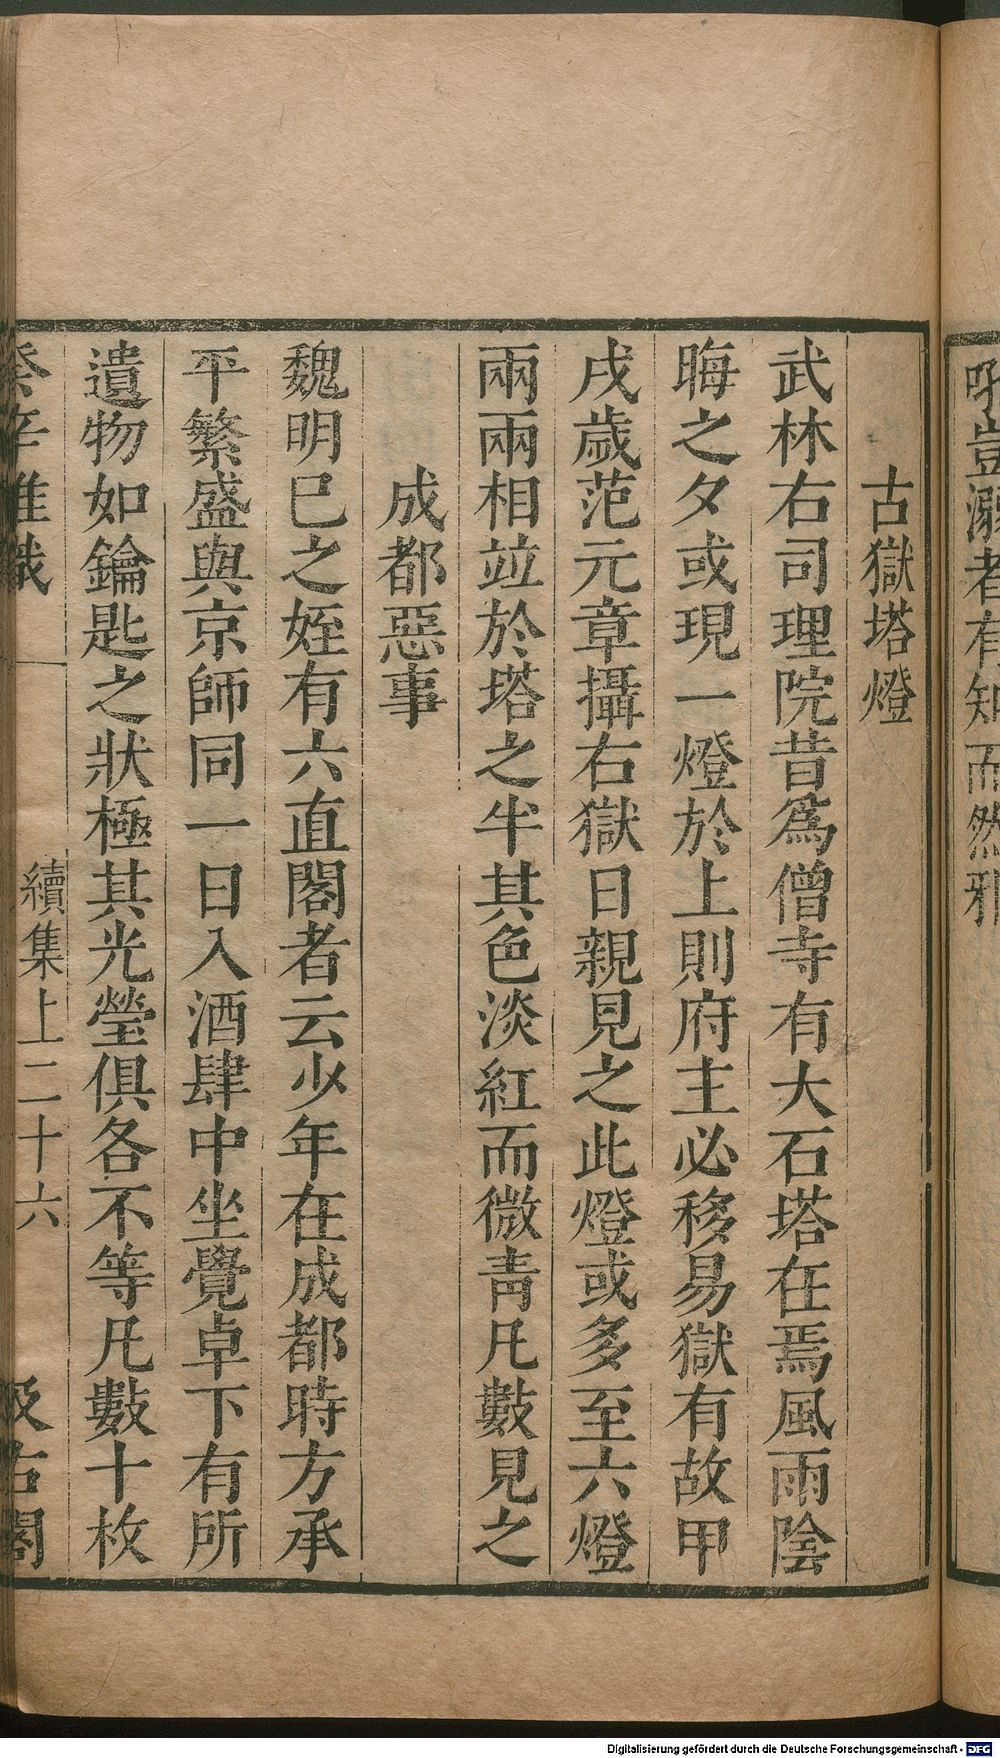 吁豈溺者有知而然邪
古獄塔燈
武林右司理院昔爲僧寺有大石塔在焉風雨陰
晦之夕或現一燈於上則府主必移易獄有故甲
戌歲范元章攝右獄日親見之此燈或多至六燈
兩兩相竝於塔之半其色淡紅而微青凡數見之
成都惡事
魏明巳之姪有六直閣者云少年在成都時方承
平繁盛與京師同一日入酒肆中坐覺卓下有所
遺物如鑰匙之狀極其光瑩俱各不等凡數十枚
癸辛雜識 續集上二十六 汲古閣
Digitalisierung gefördert durch die Deutsche Forschungsgemeinschaft - DFG